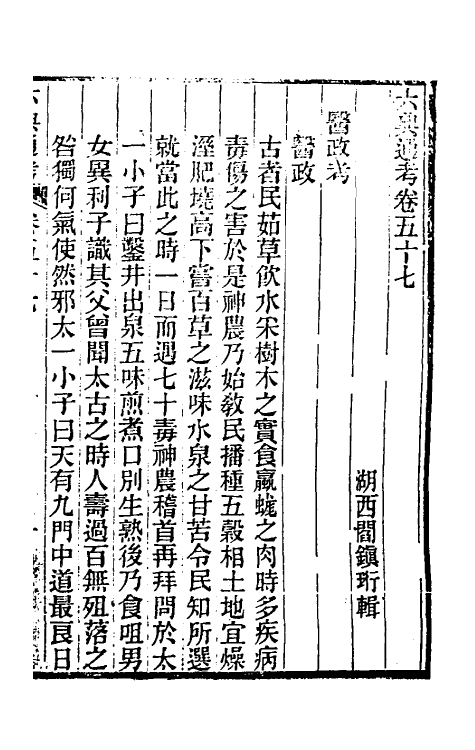 六典通考卷五十七
湖西閻鎭珩輯
醫政考
醫政
古者民茹草飮水采樹木之實食蠃蛖之肉時多疾病
毒傷之害於是神農乃始敎民播種五穀相土地宜燥
溼肥墝高下嘗百草之滋味水泉之甘苦令民知所選
就當此之時一日而遇七十毒神農稽首再拜問於太
一小子曰鑿井出泉五味煎煮口別生熟後乃食咀男
女異利子識其父曾聞太古之時人壽過百無殂落之
咎獨何氣使然邪太一小子曰天有九門中道最良日